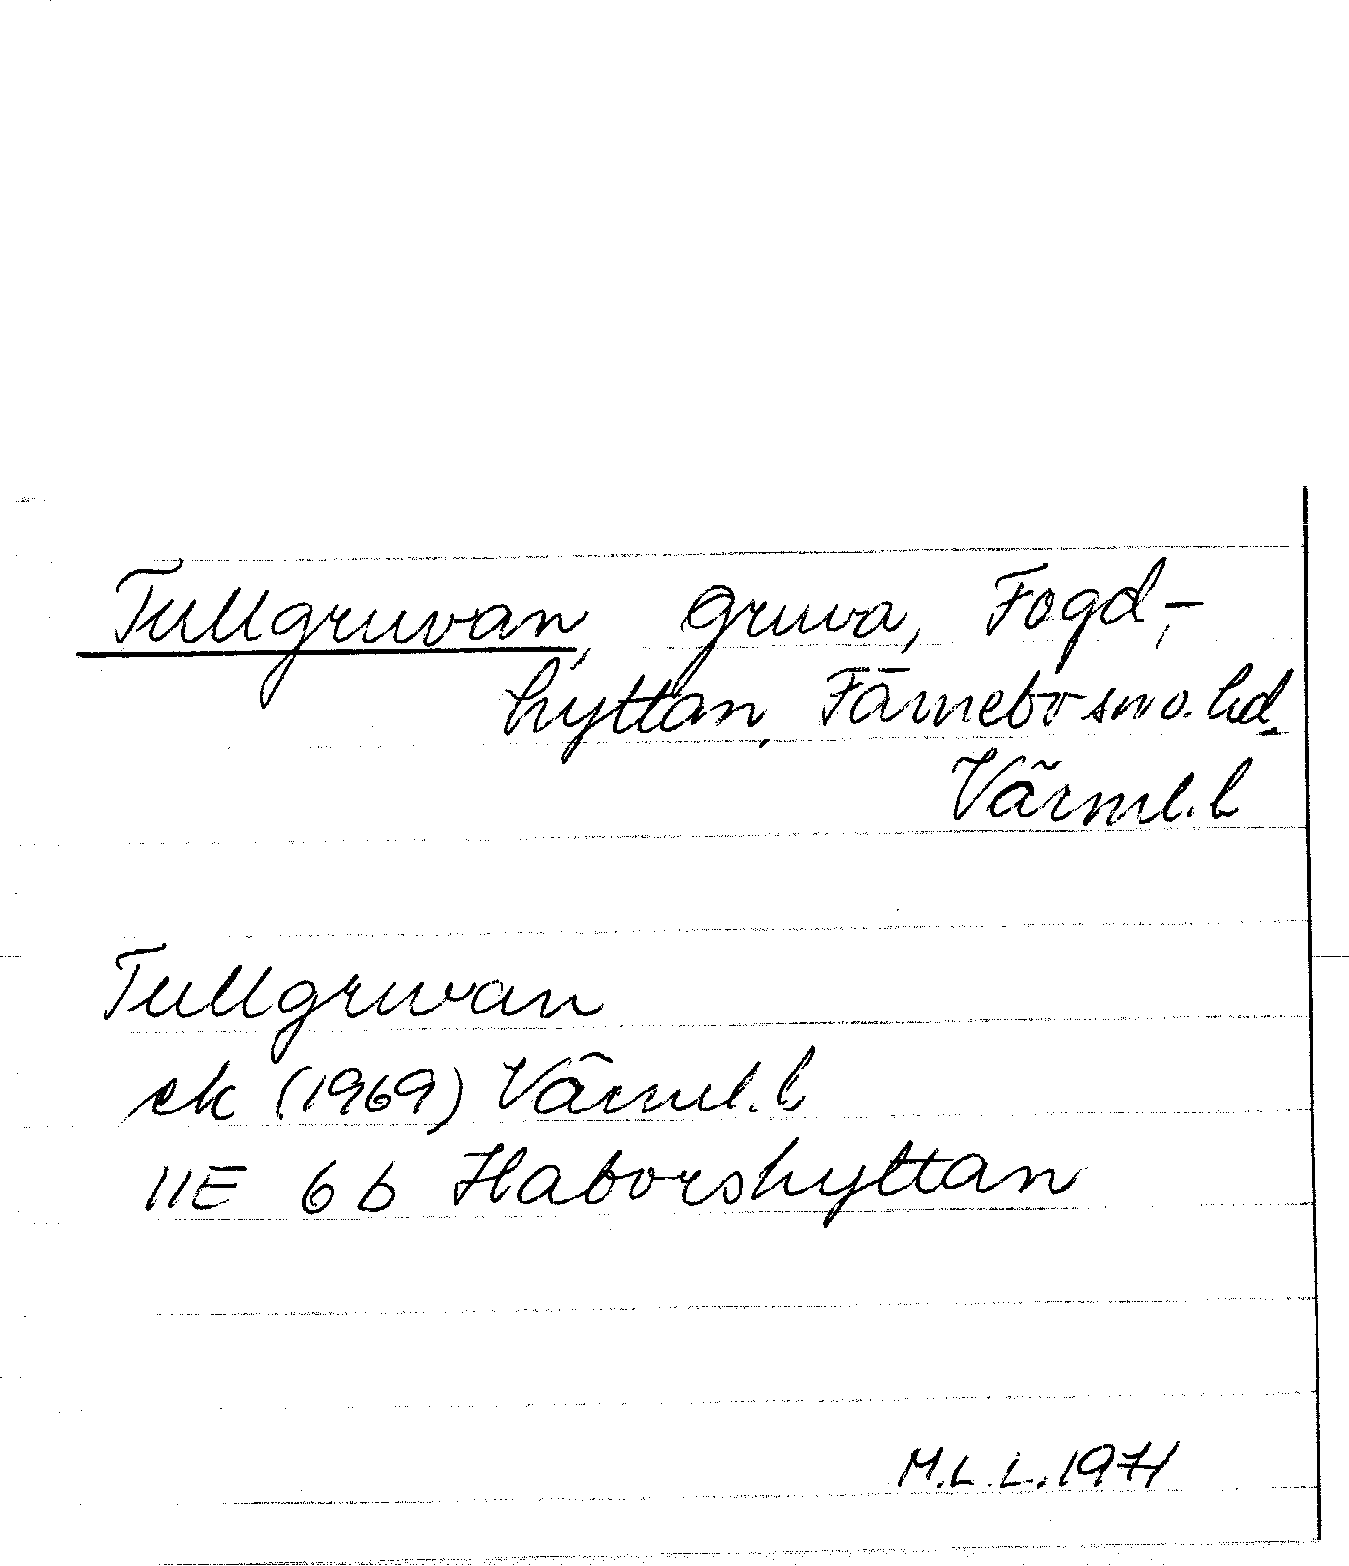 Tullgruvan, gruva, Fogd-,
hyttan, Färnebo sn o. hd.
Värml. l
Tullgruvan
ek (1969) Värml. l
11E 6b Haborshyttan
M.L.L. 1971